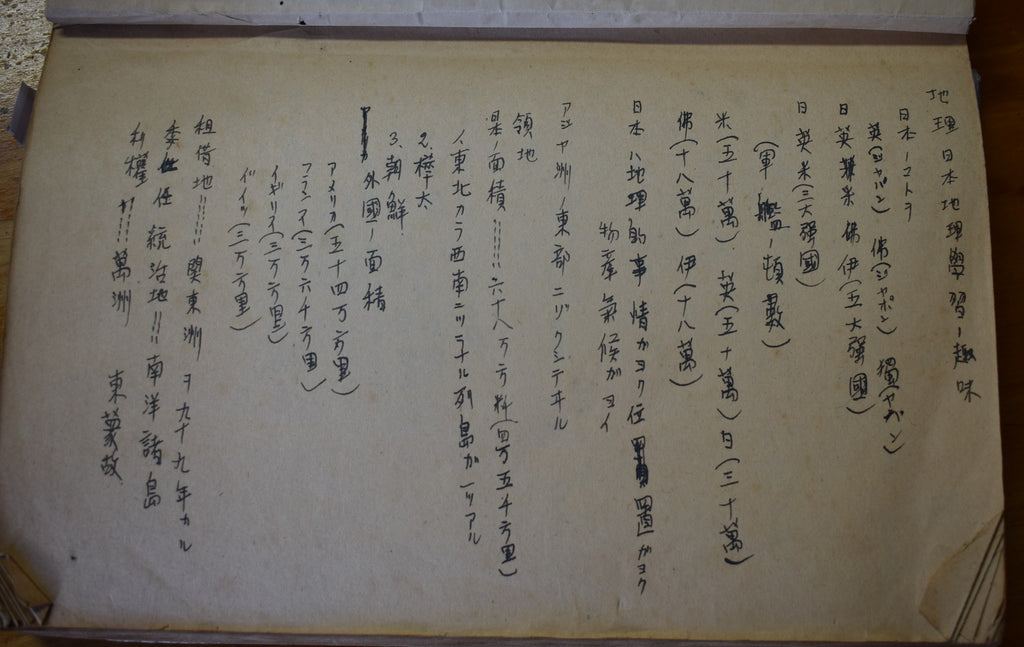 地理 日本地理學習ノ趣味
日本ノコトヲ
英(ジャパン) 佛(ジャポン) 獨(ヤパン)
日英米佛伊(五大强國)
日英米(三大强國)
(軍艦ノ頓數)
米(五十萬) 英(五十萬) 日(三十萬)
佛(十八萬) 伊(十八萬)
日本ハ地理的事情ガヨク位置ガヨク
物產氣候ガヨイ
アジヤ洲ノ東部ニゾクシテヰル
領地
ノ面積……六十八万方粁(四万五千方里)
1、東北カラ西南ニツラナル列島ガ一ツアル
2、樺太
3、朝鮮
外國ノ面積
アメリカ(五十四万方里)
フランス(三万六千方里)
イギリス(二万方里)
ドイツ(三万方里)
租借地……関東洲ヲ九十九年カル
委任統治地……南洋諸島
利權……萬洲 東蒙故